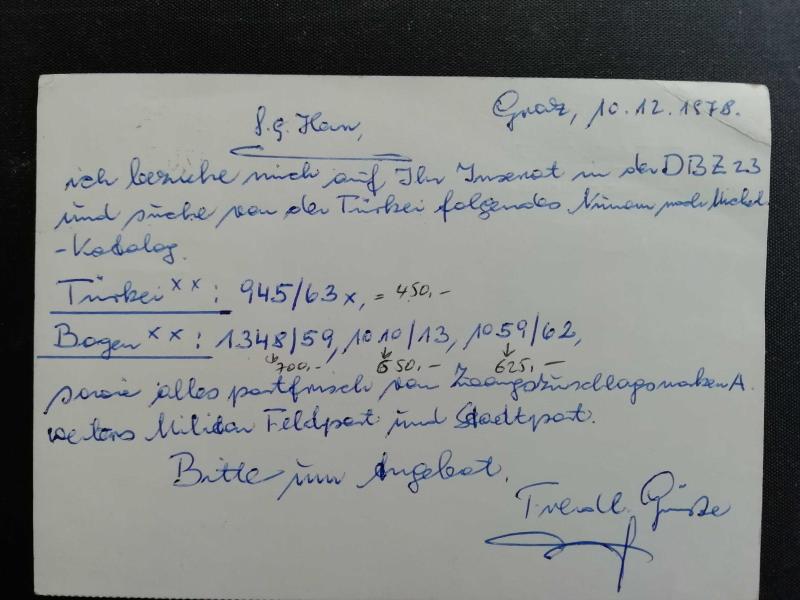 Graz, 10.12.1978.
S.g. Herr,
ich beziehe mich auf Ihr Inserat in der DBZ 23
und suche von der Türkei folgendes Numm nach Michel
-Katalog.
Türkei xx: 945/63x, = 450,-
Bogen xx: 1348/59, 1010/13, 1059/62,
700,- 650,- 625,-
sowie alles postfrisch von Zwangszuschlagsmarken A.
weiters Militär Feldpost und Stadtpost.
Bitte um Angebot.
Freudl. Grüße